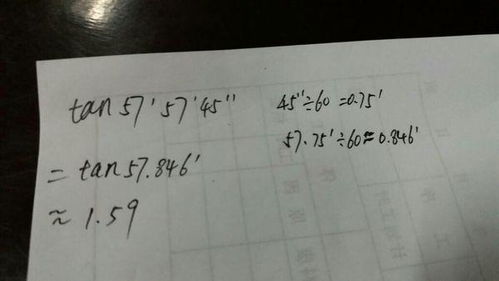 tan 57' 57' 45"
= tan 57.846'
≈ 1.59
45" ÷ 60 = 0.75'
57.75' ÷ 60 ≈ 0.846'